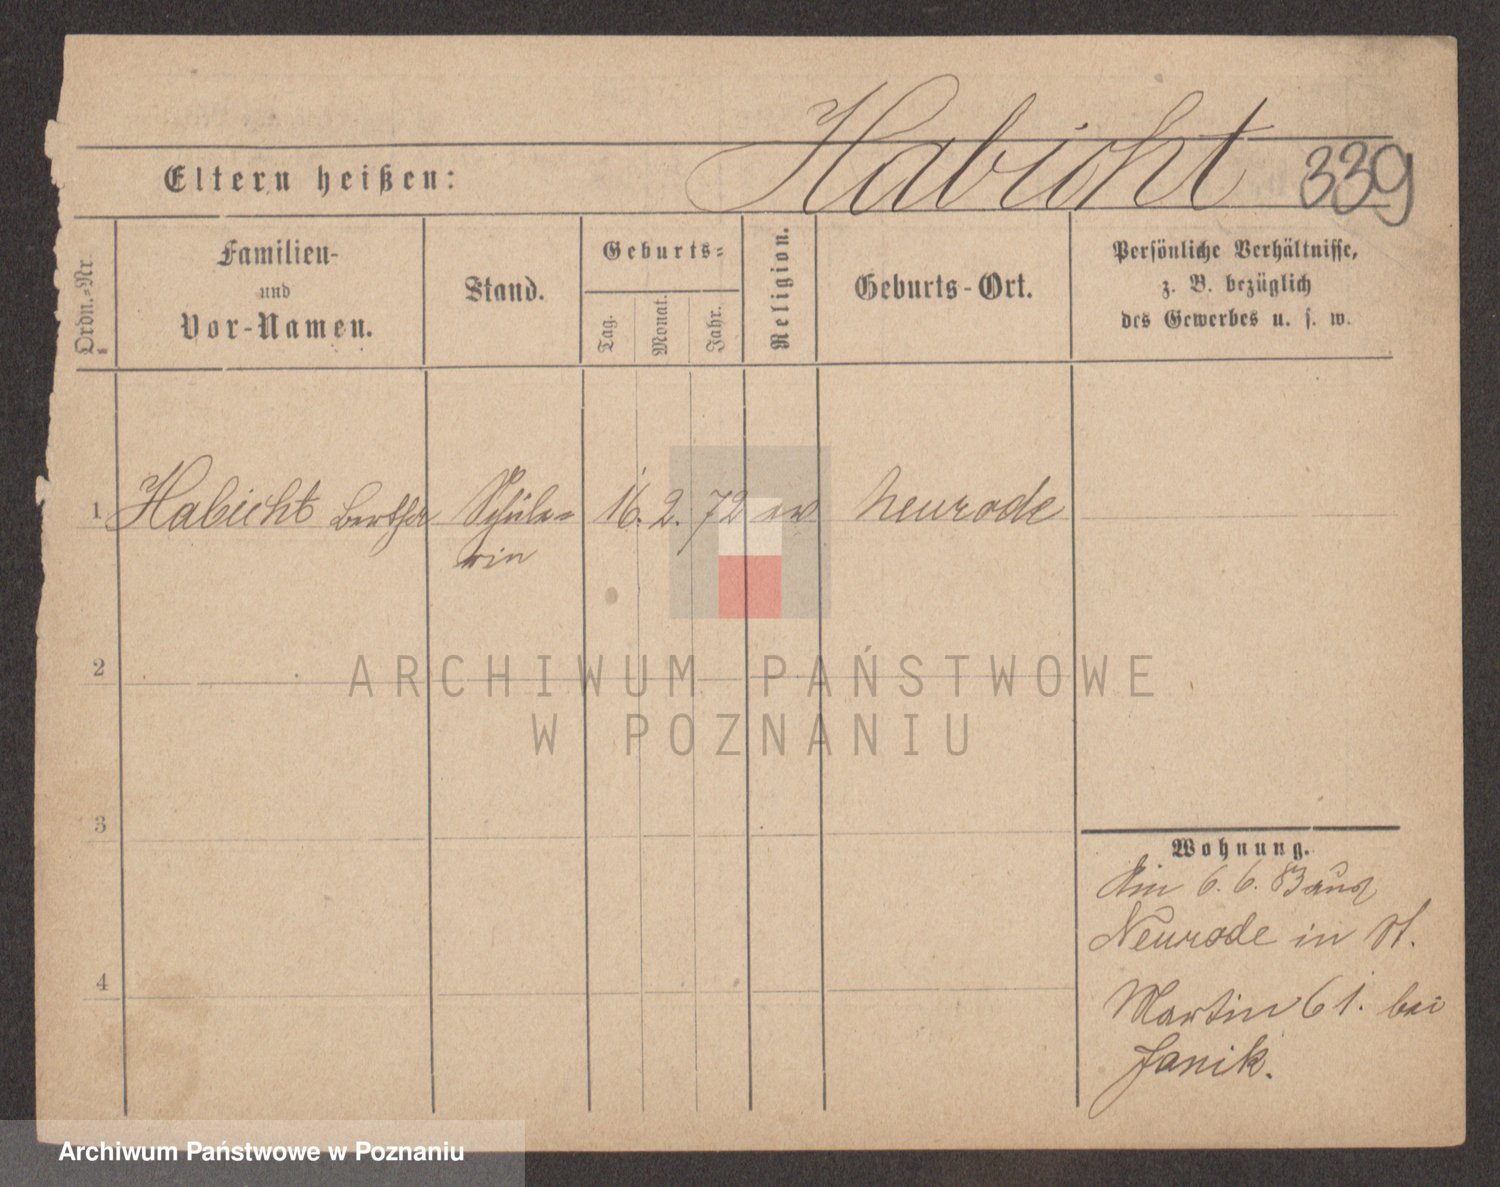 Habicht 339
Eltern heißen:
Ordn.-Nr.
Familien-
und
Vor-Namen.
Stand.
Geburts-
Tag.
Monat.
Jahr.
Religion.
Geburts-Ort.
Persönliche Verhältnisse,
z. B. bezüglich
des Gewerbes u. s. w.
1 Habicht Bertha Schüle= 16. 2. 72 ev Neurode
rin
2
3
4
Wohnung.
Am 6. 6. 83 aus
Neurode in St.
Martin 61. bei
Janik.
ARCHIWUM PAŃSTWOWE
W POZNANIU
Archiwum Państwowe w Poznaniu